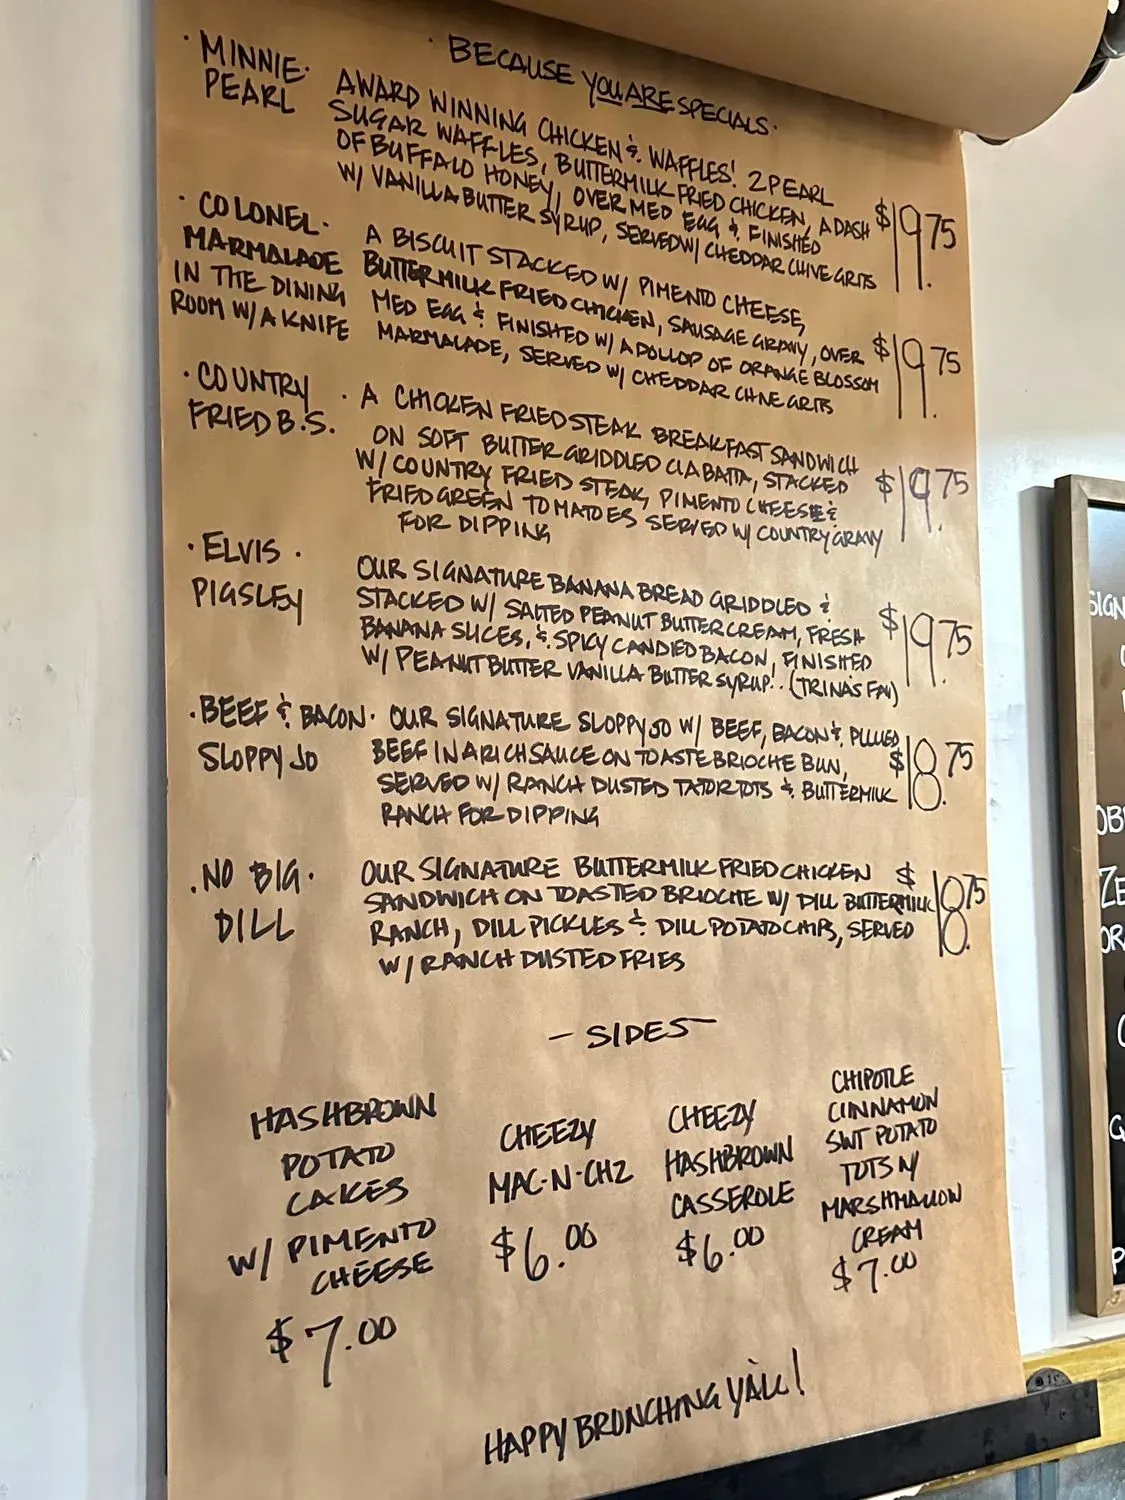 · BECAUSE YOU ARE SPECIALS ·
· MINNIE ·
PEARL
AWARD WINNING CHICKEN & WAFFLES! 2 PEARL
SUGAR WAFFLES, BUTTERMILK FRIED CHICKEN, A DASH
OF BUFFALO HONEY, OVER MED EGG & FINISHED
W/ VANILLA BUTTER SYRUP, SERVED W/ CHEDDAR CHIVE GRITS
$19.75
· COLONEL ·
MARMALADE
IN THE DINING
ROOM W/ A KNIFE
A BISCUIT STACKED W/ PIMENTO CHEESE,
BUTTERMILK FRIED CHICKEN, SAUSAGE GRAVY, OVER
MED EGG & FINISHED W/ A DOLLOP OF ORANGE BLOSSOM
MARMALADE, SERVED W/ CHEDDAR CHIVE GRITS
$19.75
· COUNTRY ·
FRIED B.S.
A CHICKEN FRIED STEAK BREAKFAST SANDWICH
ON SOFT BUTTER GRIDDLED CIABATTA, STACKED
W/ COUNTRY FRIED STEAK, PIMENTO CHEESE &
FRIED GREEN TOMATOES SERVED W/ COUNTRY GRAVY
FOR DIPPING
$19.75
· ELVIS ·
PIGSLEY
OUR SIGNATURE BANANA BREAD GRIDDLED &
STACKED W/ SALTED PEANUT BUTTER CREAM, FRESH
BANANA SLICES, & SPICY CANDIED BACON, FINISHED
W/ PEANUT BUTTER VANILLA BUTTER SYRUP! . (TRINA'S FAV)
$19.75
· BEEF & BACON ·
SLOPPY JO
OUR SIGNATURE SLOPPY JO W/ BEEF, BACON & PULLED
BEEF IN A RICH SAUCE ON TOASTE BRIOCHE BUN,
SERVED W/ RANCH DUSTED TATOR TOTS & BUTTERMILK
RANCH FOR DIPPING
$18.75
· NO BIG ·
DILL
OUR SIGNATURE BUTTERMILK FRIED CHICKEN
SANDWICH ON TOASTED BRIOCHE W/ DILL BUTTERMILK
RANCH, DILL PICKLES & DILL POTATO CHIPS, SERVED
W/ RANCH DUSTED FRIES
$18.75
- SIDES -
HASHBROWN
POTATO
CAKES
W/ PIMENTO
CHEESE
$7.00
CHEEZY
MAC-N-CHZ
$6.00
CHEEZY
HASHBROWN
CASSEROLE
$6.00
CHIPOTLE
CINNAMON
SWT POTATO
TOTS W/
MARSHMALLOW
CREAM
$7.00
HAPPY BRONCHING Y'ALL!
SIGN
OB
ZE
OR